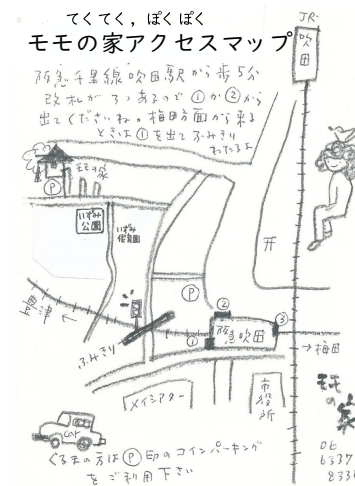 てくてく，ぽくぽく
モモの家アクセスマップ
JR-
吹田
阪急千里線吹田駅から歩5分
改札が3つあるので①か②から
出てくださいね。梅田方面から来る
ときは①を出てふみきり
わたるよ
モモの家
P
いずみ
公園
いずみ
保育園
P
②
③
①
阪急吹田
ふみきり
→梅田
メイシアター
市役所
モモの家
06
6337
833
car
くるまの方はⓅ印のコインパーキング
をご利用下さい